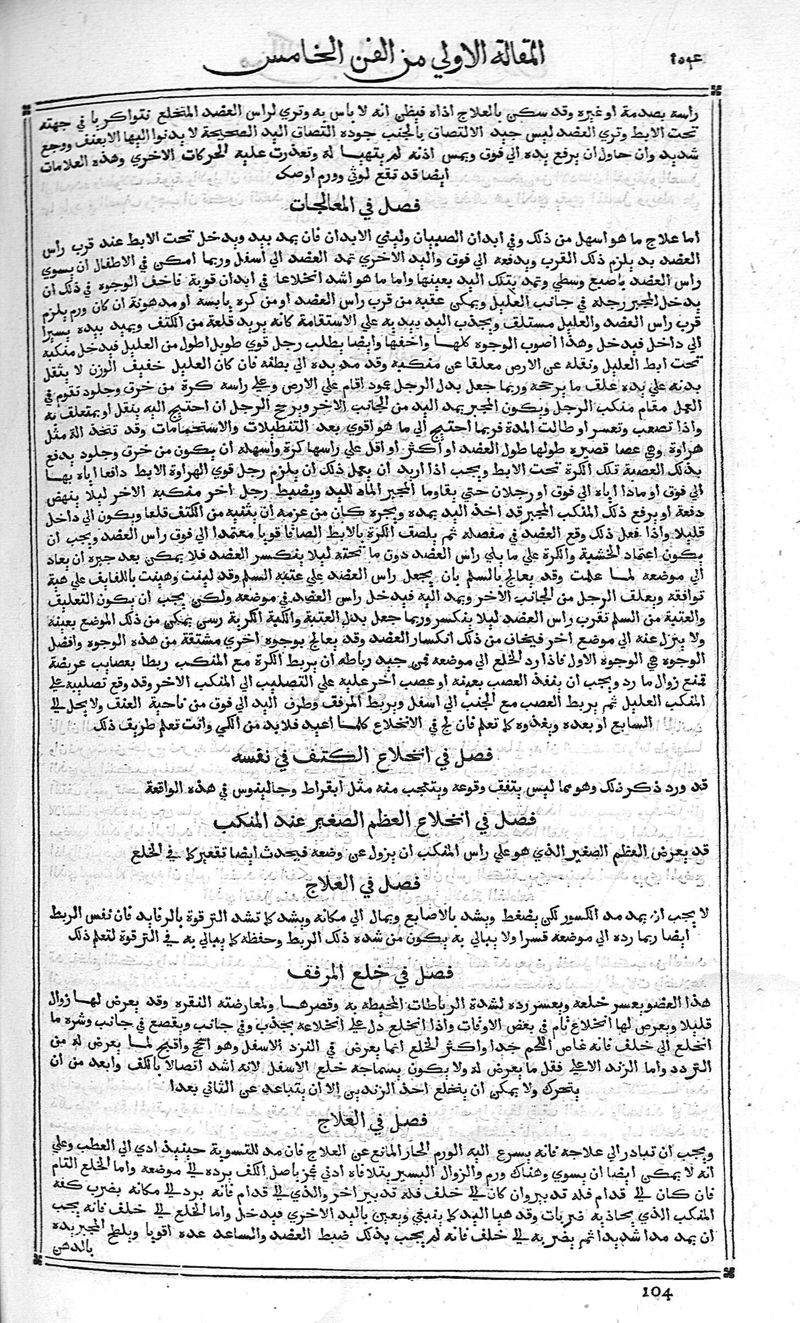 المقالة الاولي من الفن الخامس
راسه بصدمة او غيره وقد سكن بالعلاج اذاه فيظن انه لا باس به وتري لراس العضد المتخلع نتوا كريا في جهته
تحت الابط وتري العضد ليس جيد الالتصاق بالجنب جوده التصاق اليد الصحيحة لا يدنوا اليها الا بعنف ووجع
شديد وان حاول ان يرفع يده الي فوق ويمس اذنه لم يتهيا له وتعذرت عليه الحركات الاخري وهذه العلامات
ايضا قد تقع لوثي وورم او صك
فصل في المعالجات
اما علاج ما هو اسهل من ذلك وفي ابدان الصبيان وليني الابدان فان يمد بيد ويدخل تحت الابط عند قرب راس
العضد يد يلزم ذلك القرب ويدفعه الي فوق واليد الاخري تمد العضد الي اسفل وربما امكن في الاطفال ان يسوي
راس العضد باصبع وسطي وتمد بتلك اليد بعينها واما ما هو اشد انخلاعا في ابدان قوية فاخف الوجوه في ذلك ان
يدخل المجبر رجله في جانب العليل ويمكن عقبه من قرب راس العضد او من كره يابسه او مدهونة ان كان ورم يلزم
قرب راس العضد والعليل مستلق ويجذب اليد بيديه علي الاستقامة كانه يريد قلعة من الكتف ويميد بيده يسيرا
الي داخل فيدخل وهذا اصوب الوجوه كلها واخفها وايضا يطلب رجل قوي طويل اطول من العليل فيدخل منكبه
تحت ابط العليل ونقله عن الارض معلقا عن منكبيه وقد مد يده الي بطنه فان كان العليل خفيف الوزن لا يثقل
بدنه علي يده علف ما يرجحه وربما جعل بدل الرجل عمود اقام علي الارض وعلي راسه كرة من خرق وجلود تقوم في
العمل مقام منكب الرجل ويكون المجبر يمد اليد من الجانب الاخر ويرجح الرجل ان احتيج اليه بنقل او بمتعلف به
واذا تصعب وتعسر او طالت المدة فربما احتيج الي ما هو اقوي بعد التنطيلات والاستحمامات وقد تتخذ الة مثل
هراوة وهي عصا قصيره طولها طول العضد او اكثر او اقل علي راسها كرة واسهله ان يكون من خرق وجلود يدفع
بذلك العصية تلك الكرة تحت الابط ويجب اذا اريد ان يعمل ذلك ان يلزم رجل قوي الهراوة الابط دافعا اياه بها
الي فوق او مادا اياه الي فوق او رجلان حتي يقاوما المجبر الماد لليد ويضبط رجل اخر منكبه الاخر ليلا ينهض
دفعة او يرفع ذلك المنكب المجبر قد اخذ اليد يمده ويجره كان من عزمه ان يثنيه من الكتف قلعا ويكون الي داخل
قليلا واذا فعل ذلك وقع العضد في مفصله ثم يلصف الكرة بالابط الصاقا قويا معتمدا الي فوق راس العضد ويجب ان
يكون اعتماد الخشبة والكرة علي ما يلي راس العضد دون ما تحته ليلا ينكسر العضد فلا يمكن بعد جبره ان يعاد
الي موضعه لما علمت وقد يعالج بالسلم بان يجعل راس العضد علي عتبة السلم وقد لينت وهيئت باللفايف علي هية
توافقه ويعلف الرجل من الجانب الاخر ويمد اليه فيدخل راس العضد في موضعه ولكن يجب ان يكون التعليف
والعتبة من السلم تقرب راس العضد ليلا ينكسر وربما جعل بدل العتبة واللية الكرية رسن يمكن من ذلك الموضع بعينه
ولا ينزل عنه الي موضع اخر فيخان من ذلك انكسار العضد وقد يعالج بوجوه اخري مشتقة من هذه الوجوه وافضل
الوجوه هي الوجوه الاول فاذا رد الخلع الي موضعه فمن جيد رباطه ان يربط الكرة مع المنكب ربطا بعصايب عريضة
تمنع زوال ما رد ويجب ان ينفذ العصب بعينه او عصب اخر عليه علي التصليب الي المنكب الاخر وقد وقع تصليبه علي
المنكب العليل ثم يربط العصب مع الجنب الي اسفل ويربط المرفق وطرف اليد الي فوق من ناحية العنف ولا يحل الي
السابع او بعده ويغذوه كما تعلم فان لج في الانخلاع كلما اعيد فلابد من الكي وانت تعلم طريف ذلك
فصل في انخلاع الكتف في نفسه
قد ورد ذكر ذلك وهو مما ليس يتفق وقوعه ويتعجب منه مثل ابقراط وجالينوس في هذه الواقعة
فصل في انخلاع العظم الصغير عند المنكب
قد يعرض العظم الصغير الذي هو علي راس المنكب ان يزول عن وضعه فيحدث ايضا تقعير كما في الخلع
فصل في العلاج
لا يجب ان يمد مد الكسور لكي يضغط ويشد بالاصابع ويمال الي مكانه ويشد كما تشد الترقوة بالرفايد فان نفس الربط
ايضا ربما رده الي موضعه قسرا ولا يبالي به يكون من شده ذلك الربط وحفظه كما يبالي به في الترقوة لتعلم ذلك
فصل في خلع المرفق
هذا العضو يعسر خلعة ويعسر رده لشدة الرباطات المحيطه به وقصرها ومعارضته النقره وقد يعرض لها زوال
قليلا ويعرض لها انخلاع تام في بعض الاوقات واذا انخلع دل علي انخلاعه بجذب وفي جانب ويقصع في جانب وشره ما
انخلع الي خلف فانه عاص اللحم جدا واكثر الخلع انما يعرض في الفرد الاسفل وهو اسج واقبح لما يعرض له من
التردد واما الزند الاعلي فقل ما يعرض له ولا يكون بسماجة خلع الاسفل لانه اشد اتصالا بالكف وابعد من ان
يتحرك ولا يمكن ان ينخلع احد الزندين الا ان يتباعد عن الثاني بعدا
فصل في العلاج
ويجب ان تبادر الي علاجه فانه يسرع اليه الورم الحار المانع عن العلاج فان مد للتسوية حينيذ ادي الي العطب وعلي
انه لا يمكن ايضا ان يسوي وهناك ورم والزوال اليسير يتلافاه ادني غمز باصل الكف يرده في موضعه واما الخلع التام
فان كان الي قدام فله تدبير وان كان الي خلف فله تدبير اخر والذي الي قدام فانه يرد الي مكانه بضرب كفه
المنكب الذي يحاذيه ضربات وقد هيا اليد كما ينبغي ويعين باليد الاخري فيدخل واما الخلع الي خلف فانه يجب
ان يمد مدا شديدا ثم يضربه الي خلف فانه لم يجب بذلك ضبط العضد والساعد عده اقويا ويلطخ المجبر يده
بالدهن
104